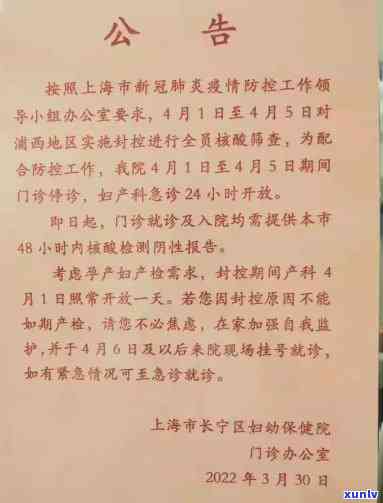 公 告
按照上海市新冠肺炎疫情防控工作领
导小组办公室要求，4月1日至4月5日对
浦西地区实施封控进行全员核酸筛查，为配
合防控工作，我院4月1日至4月5日期间
门诊停诊，妇产科急诊24小时开放。
即日起，门诊就诊及入院均需提供本市
48小时内核酸检测阴性报告。
考虑孕产妇产检需求，封控期间产科4
月1日照常开放一天。若您因封控原因不能
如期产检，请您不必焦虑，在家加强自我监
护，并于4月6日及以后来院现场挂号就诊，
如有紧急情况可至急诊就诊。
上海市长宁区妇幼保健院
门诊办公室
2022年3月30日
xunlv